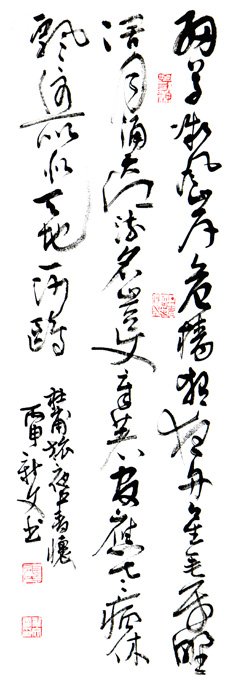 細草微風岸危檣獨夜舟星垂平野
闊月涌大江流名豈文章著官應老病休
飄〻何所似天地一沙鷗
杜甫旅夜書懷
丙申新文書